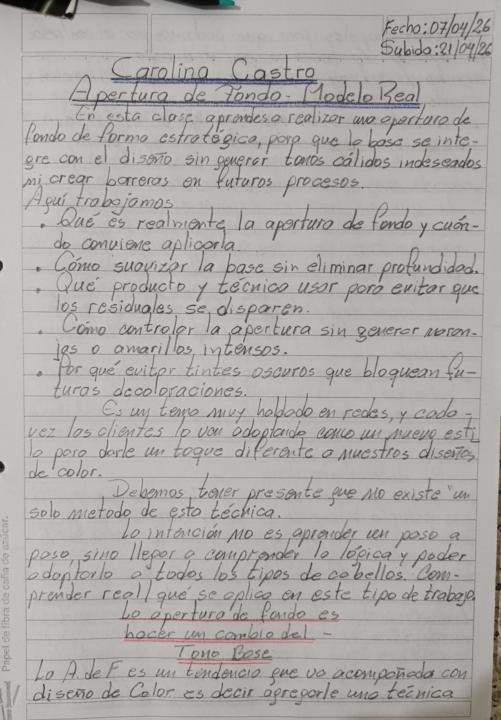 Fecha: 07/04/26
Subida: 21/04/26
Carolina Castro
Apertura de Fondo - Modelo Real
En esta clase aprendes a realizar una apertura de
fondo de forma estratégica, para que la base se inte-
gre con el diseño sin generar tonos cálidos indeseados
ni crear barreras en futuros procesos.
Aquí trabajamos
• Qué es realmente la apertura de fondo y cuán-
do conviene aplicarla.
• Cómo suavizar la base sin eliminar profundidad.
• Qué producto y técnica usar para evitar que
los residuales se disparen.
• Cómo controlar la apertura sin generar naran-
jas o amarillos intensos.
• Por qué evitar tintes oscuros que bloquean fu-
turas decoloraciones.
Es un tema muy hablado en redes, y cada -
vez los clientes lo van adoptando como un nuevo esti
lo para darle un toque diferente a nuestros diseños
de color.
Debemos tener presente que no existe "un
solo metodo de esta técnica.
La intención no es aprender un paso a
paso, sino llegar a comprender la lógica y poder
adoptarlo a todos los tipos de cabellos. Com-
prender real/ qué se aplica en este tipo de trabajo.
La apertura de fondo es
hacer un cambio del -
Tono Base
La A. de F es un tendencia que va acompañada con
diseño de Color es decir agregarle una técnica
Papel de fibra de caña de azúcar.